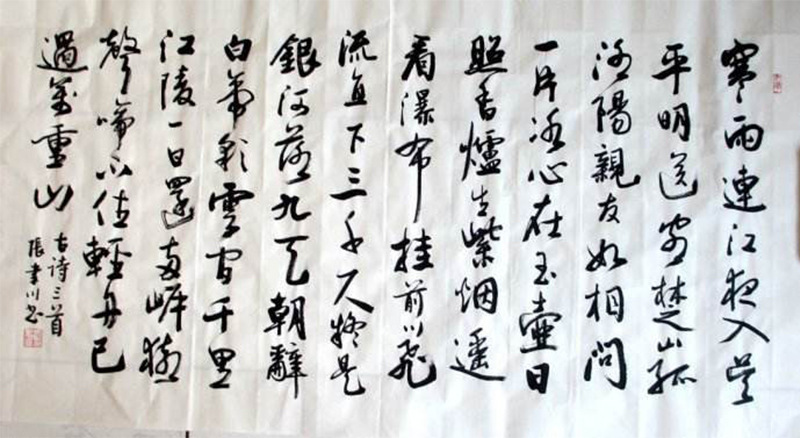 寒雨連江夜入吴
平明送客楚山孤
洛陽親友如相問
一片冰心在玉壺日
照香爐生紫烟遥
看瀑布挂前川飛
流直下三千尺疑是
銀河落九天朝辭
白帝彩雲間千里
江陵一日還两岸猿
聲啼不住輕舟已
過萬重山
古诗三首
張川书